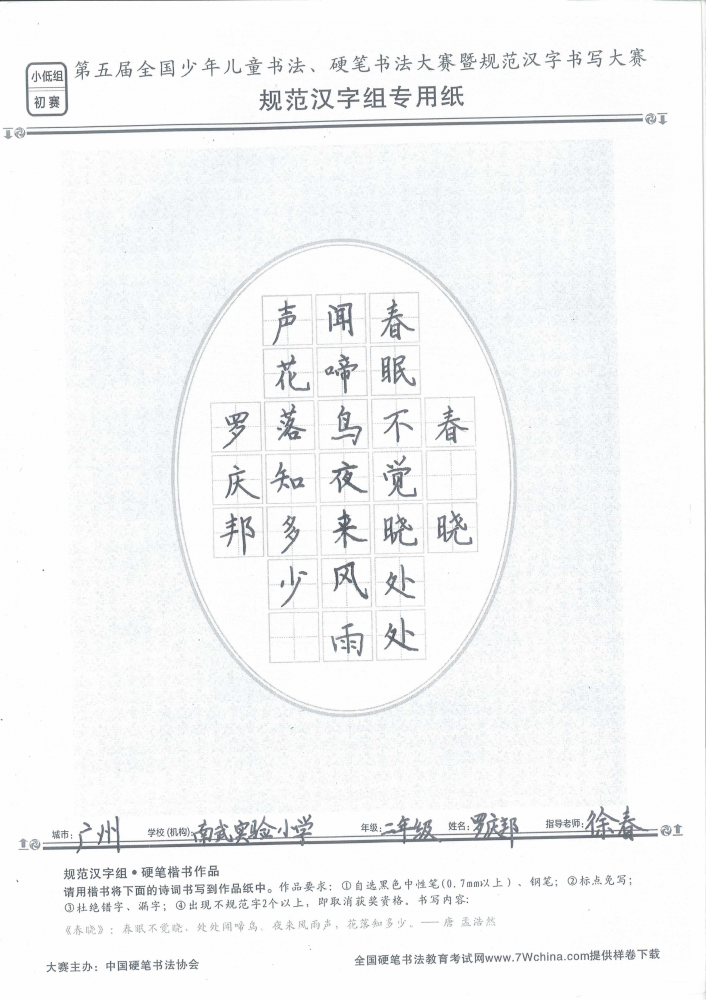 小低组
初赛
第五届全国少年儿童书法、硬笔书法大赛暨规范汉字书写大赛
规范汉字组专用纸
春晓
春眠不觉晓处处
闻啼鸟夜来风雨
声花落知多少
罗庆邦
城市：广州 学校(机构)：南武实验小学 年级：二年级 姓名：罗庆邦 指导老师：徐春
规范汉字组·硬笔楷书作品
请用楷书将下面的诗词书写到作品纸中。作品要求：①自选黑色中性笔(0.7mm以上）、钢笔；②标点免写；
③杜绝错字、漏字；④出现不规范字2个以上，即取消获奖资格。书写内容：
《春晓》：春眠不觉晓，处处闻啼鸟。夜来风雨声，花落知多少。——唐 孟浩然
大赛主办：中国硬笔书法协会
全国硬笔书法教育考试网www.7Wchina.com提供样卷下载